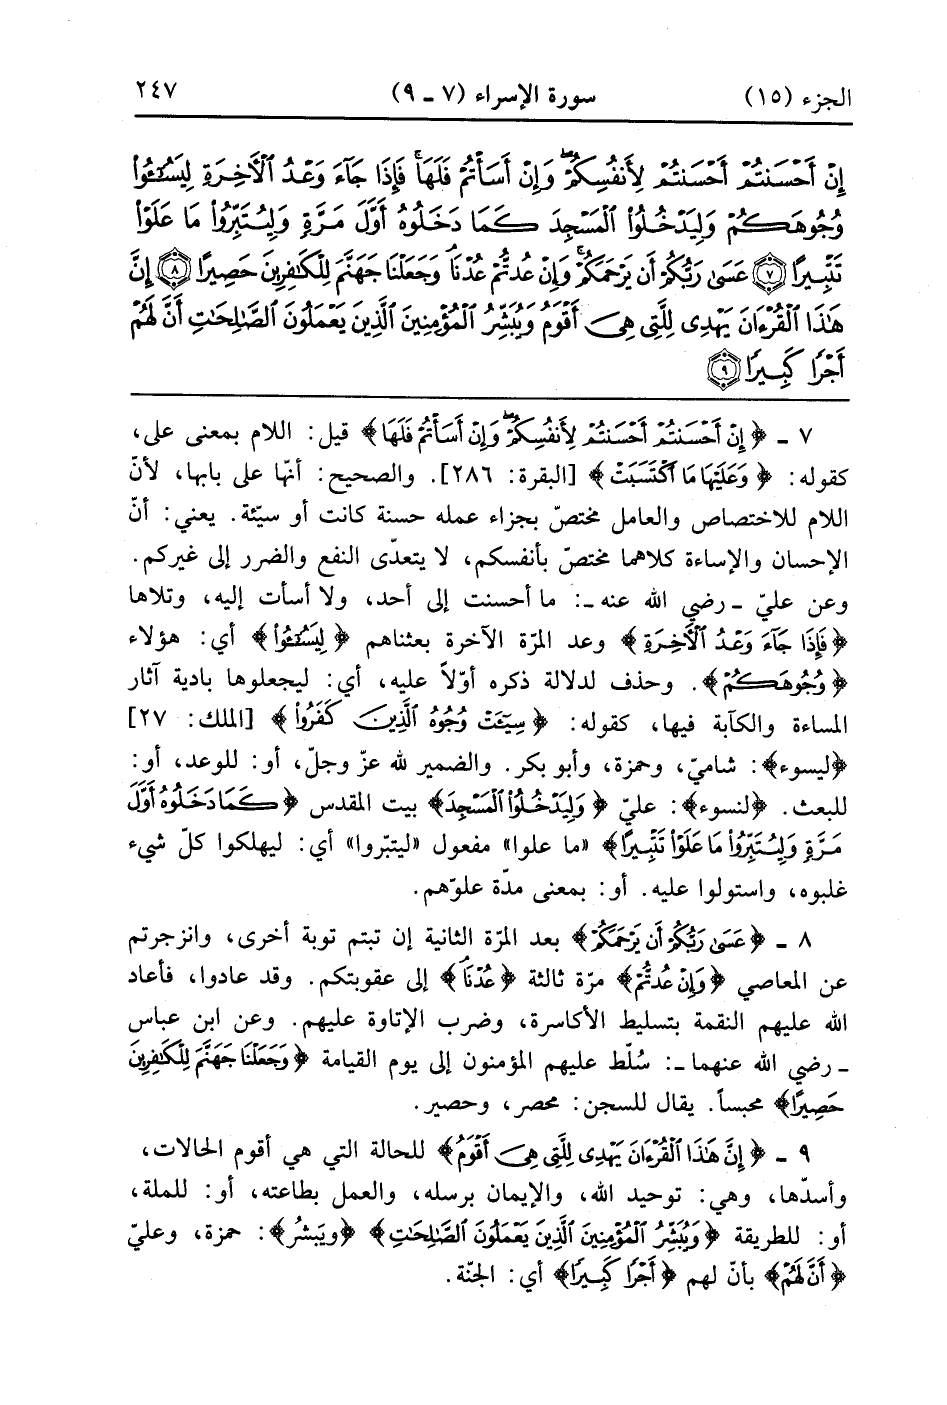 الجزء (١٥) سورة الإسراء (٧ ـ ٩) ٢٤٧
إِنْ أَحْسَنتُمْ أَحْسَنتُمْ لِأَنفُسِكُمْ ۖ وَإِنْ أَسَأْتُمْ فَلَهَا ۚ فَإِذَا جَآءَ وَعْدُ ٱلْأَخِرَةِ لِيَسُـۥٓـُٔوا۟
وُجُوهَكُمْ وَلِيَدْخُلُوا۟ ٱلْمَسْجِدَ كَمَا دَخَلُوهُ أَوَّلَ مَرَّةٍ وَلِيُتَبِّرُوا۟ مَا عَلَوْا۟
تَتْبِيرًا ﴿٧﴾ عَسَىٰ رَبُّكُمْ أَن يَرْحَمَكُمْ ۚ وَإِنْ عُدتُّمْ عُدْنَا ۘ وَجَعَلْنَا جَهَنَّمَ لِلْكَـٰفِرِينَ حَصِيرًا ﴿٨﴾ إِنَّ
هَـٰذَا ٱلْقُرْءَانَ يَهْدِى لِلَّتِى هِىَ أَقْوَمُ وَيُبَشِّرُ ٱلْمُؤْمِنِينَ ٱلَّذِينَ يَعْمَلُونَ ٱلصَّـٰلِحَـٰتِ أَنَّ لَهُمْ
أَجْرًا كَبِيرًا ﴿٩﴾
٧ ـ ﴿إِنْ أَحْسَنتُمْ أَحْسَنتُمْ لِأَنفُسِكُمْ ۖ وَإِنْ أَسَأْتُمْ فَلَهَا﴾ قيل: اللام بمعنى على،
كقوله: ﴿وَعَلَيْهَا مَا ٱكْتَسَبَتْ﴾ [البقرة: ٢٨٦]. والصحيح: أنّها على بابها، لأنّ
اللام للاختصاص والعامل مختصّ بجزاء عمله حسنة كانت أو سيّئة. يعني: أنّ
الإحسان والإساءة كلاهما مختصّ بأنفسكم، لا يتعدّى النفع والضرر إلى غيركم.
وعن عليّ ـ رضي الله عنه ـ: ما أحسنت إلى أحد، ولا أسأت إليه، وتلاها
﴿فَإِذَا جَآءَ وَعْدُ ٱلْأَخِرَةِ﴾ وعد المرّة الآخرة بعثناهم ﴿لِيَسُـۥٓـُٔوا۟﴾ أي: هؤلاء
﴿وُجُوهَكُمْ﴾. وحذف لدلالة ذكره أوّلاً عليه، أي: ليجعلوها بادية آثار
المساءة والكآبة فيها، كقوله: ﴿سِيٓـَٔتْ وُجُوهُ ٱلَّذِينَ كَفَرُوا۟﴾ [الملك: ٢٧]
﴿ليسوء﴾: شاميّ، وحمزة، وأبو بكر. والضمير لله عزّ وجلّ، أو: للوعد، أو:
للبعث. ﴿لنسوء﴾: عليّ ﴿وَلِيَدْخُلُوا۟ ٱلْمَسْجِدَ﴾ بيت المقدس ﴿كَمَا دَخَلُوهُ أَوَّلَ
مَرَّةٍ وَلِيُتَبِّرُوا۟ مَا عَلَوْا۟ تَتْبِيرًا﴾ «ما علوا» مفعول «ليتبّروا» أي: ليهلكوا كلّ شيء
غلبوه، واستولوا عليه. أو: بمعنى مدّة علوّهم.
٨ ـ ﴿عَسَىٰ رَبُّكُمْ أَن يَرْحَمَكُمْ﴾ بعد المرّة الثانية إن تبتم توبة أخرى، وانزجرتم
عن المعاصي ﴿وَإِنْ عُدتُّمْ﴾ مرّة ثالثة ﴿عُدْنَا﴾ إلى عقوبتكم. وقد عادوا، فأعاد
الله عليهم النقمة بتسليط الأكاسرة، وضرب الإتاوة عليهم. وعن ابن عباس
ـ رضي الله عنهما ـ: سُلّط عليهم المؤمنون إلى يوم القيامة ﴿وَجَعَلْنَا جَهَنَّمَ لِلْكَـٰفِرِينَ
حَصِيرًا﴾ محبساً. يقال للسجن: محصر، وحصير.
٩ ـ ﴿إِنَّ هَـٰذَا ٱلْقُرْءَانَ يَهْدِى لِلَّتِى هِىَ أَقْوَمُ﴾ للحالة التي هي أقوم الحالات،
وأسدّها، وهي: توحيد الله، والإيمان برسله، والعمل بطاعته، أو: للملة،
أو: للطريقة ﴿وَيُبَشِّرُ ٱلْمُؤْمِنِينَ ٱلَّذِينَ يَعْمَلُونَ ٱلصَّـٰلِحَـٰتِ﴾ ﴿ويَبشُر﴾: حمزة، وعليّ
﴿أَنَّ لَهُمْ﴾ بأنّ لهم ﴿أَجْرًا كَبِيرًا﴾ أي: الجنّة.